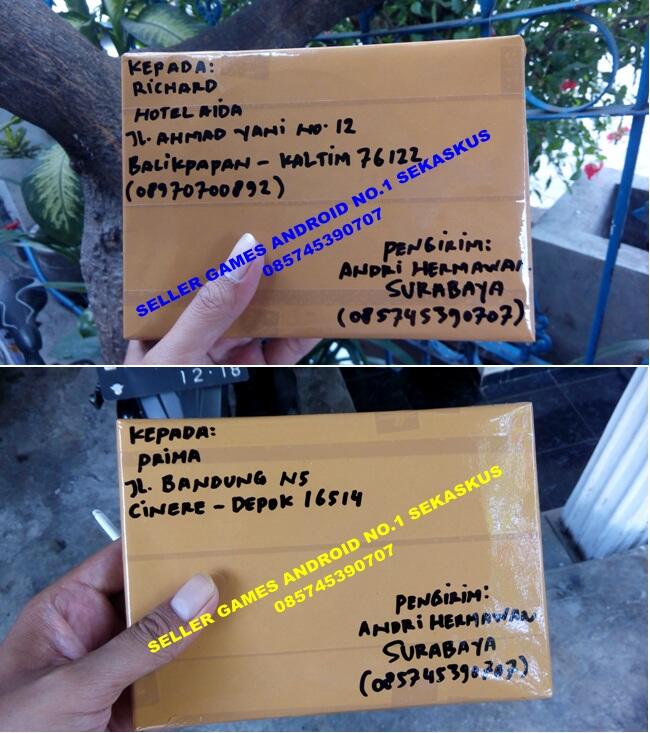 KEPADA:
RICHARD
HOTEL AIDA
JL. AHMAD YANI NO. 12
BALIKPAPAN - KALTIM 76122
(08970700892)
SELLER GAMES ANDROID NO.1 SEKASKUS
085745390707
PENGIRIM:
ANDRI HERMAWAN
SURABAYA
(085745390707)
12.18
KEPADA:
PRIMA
JL. BANDUNG N5
CINERE - DEPOK 16514
SELLER GAMES ANDROID NO.1 SEKASKUS
085745390707
PENGIRIM:
ANDRI HERMAWAN
SURABAYA
(085745390707)